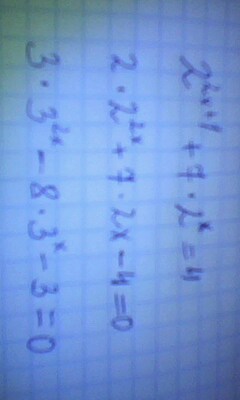 2^{2x+1} + 7 · 2^x = 4
2 · 2^{2x} + 7 · 2x - 4 = 0
3 · 3^{2x} - 8 · 3^x - 3 = 0